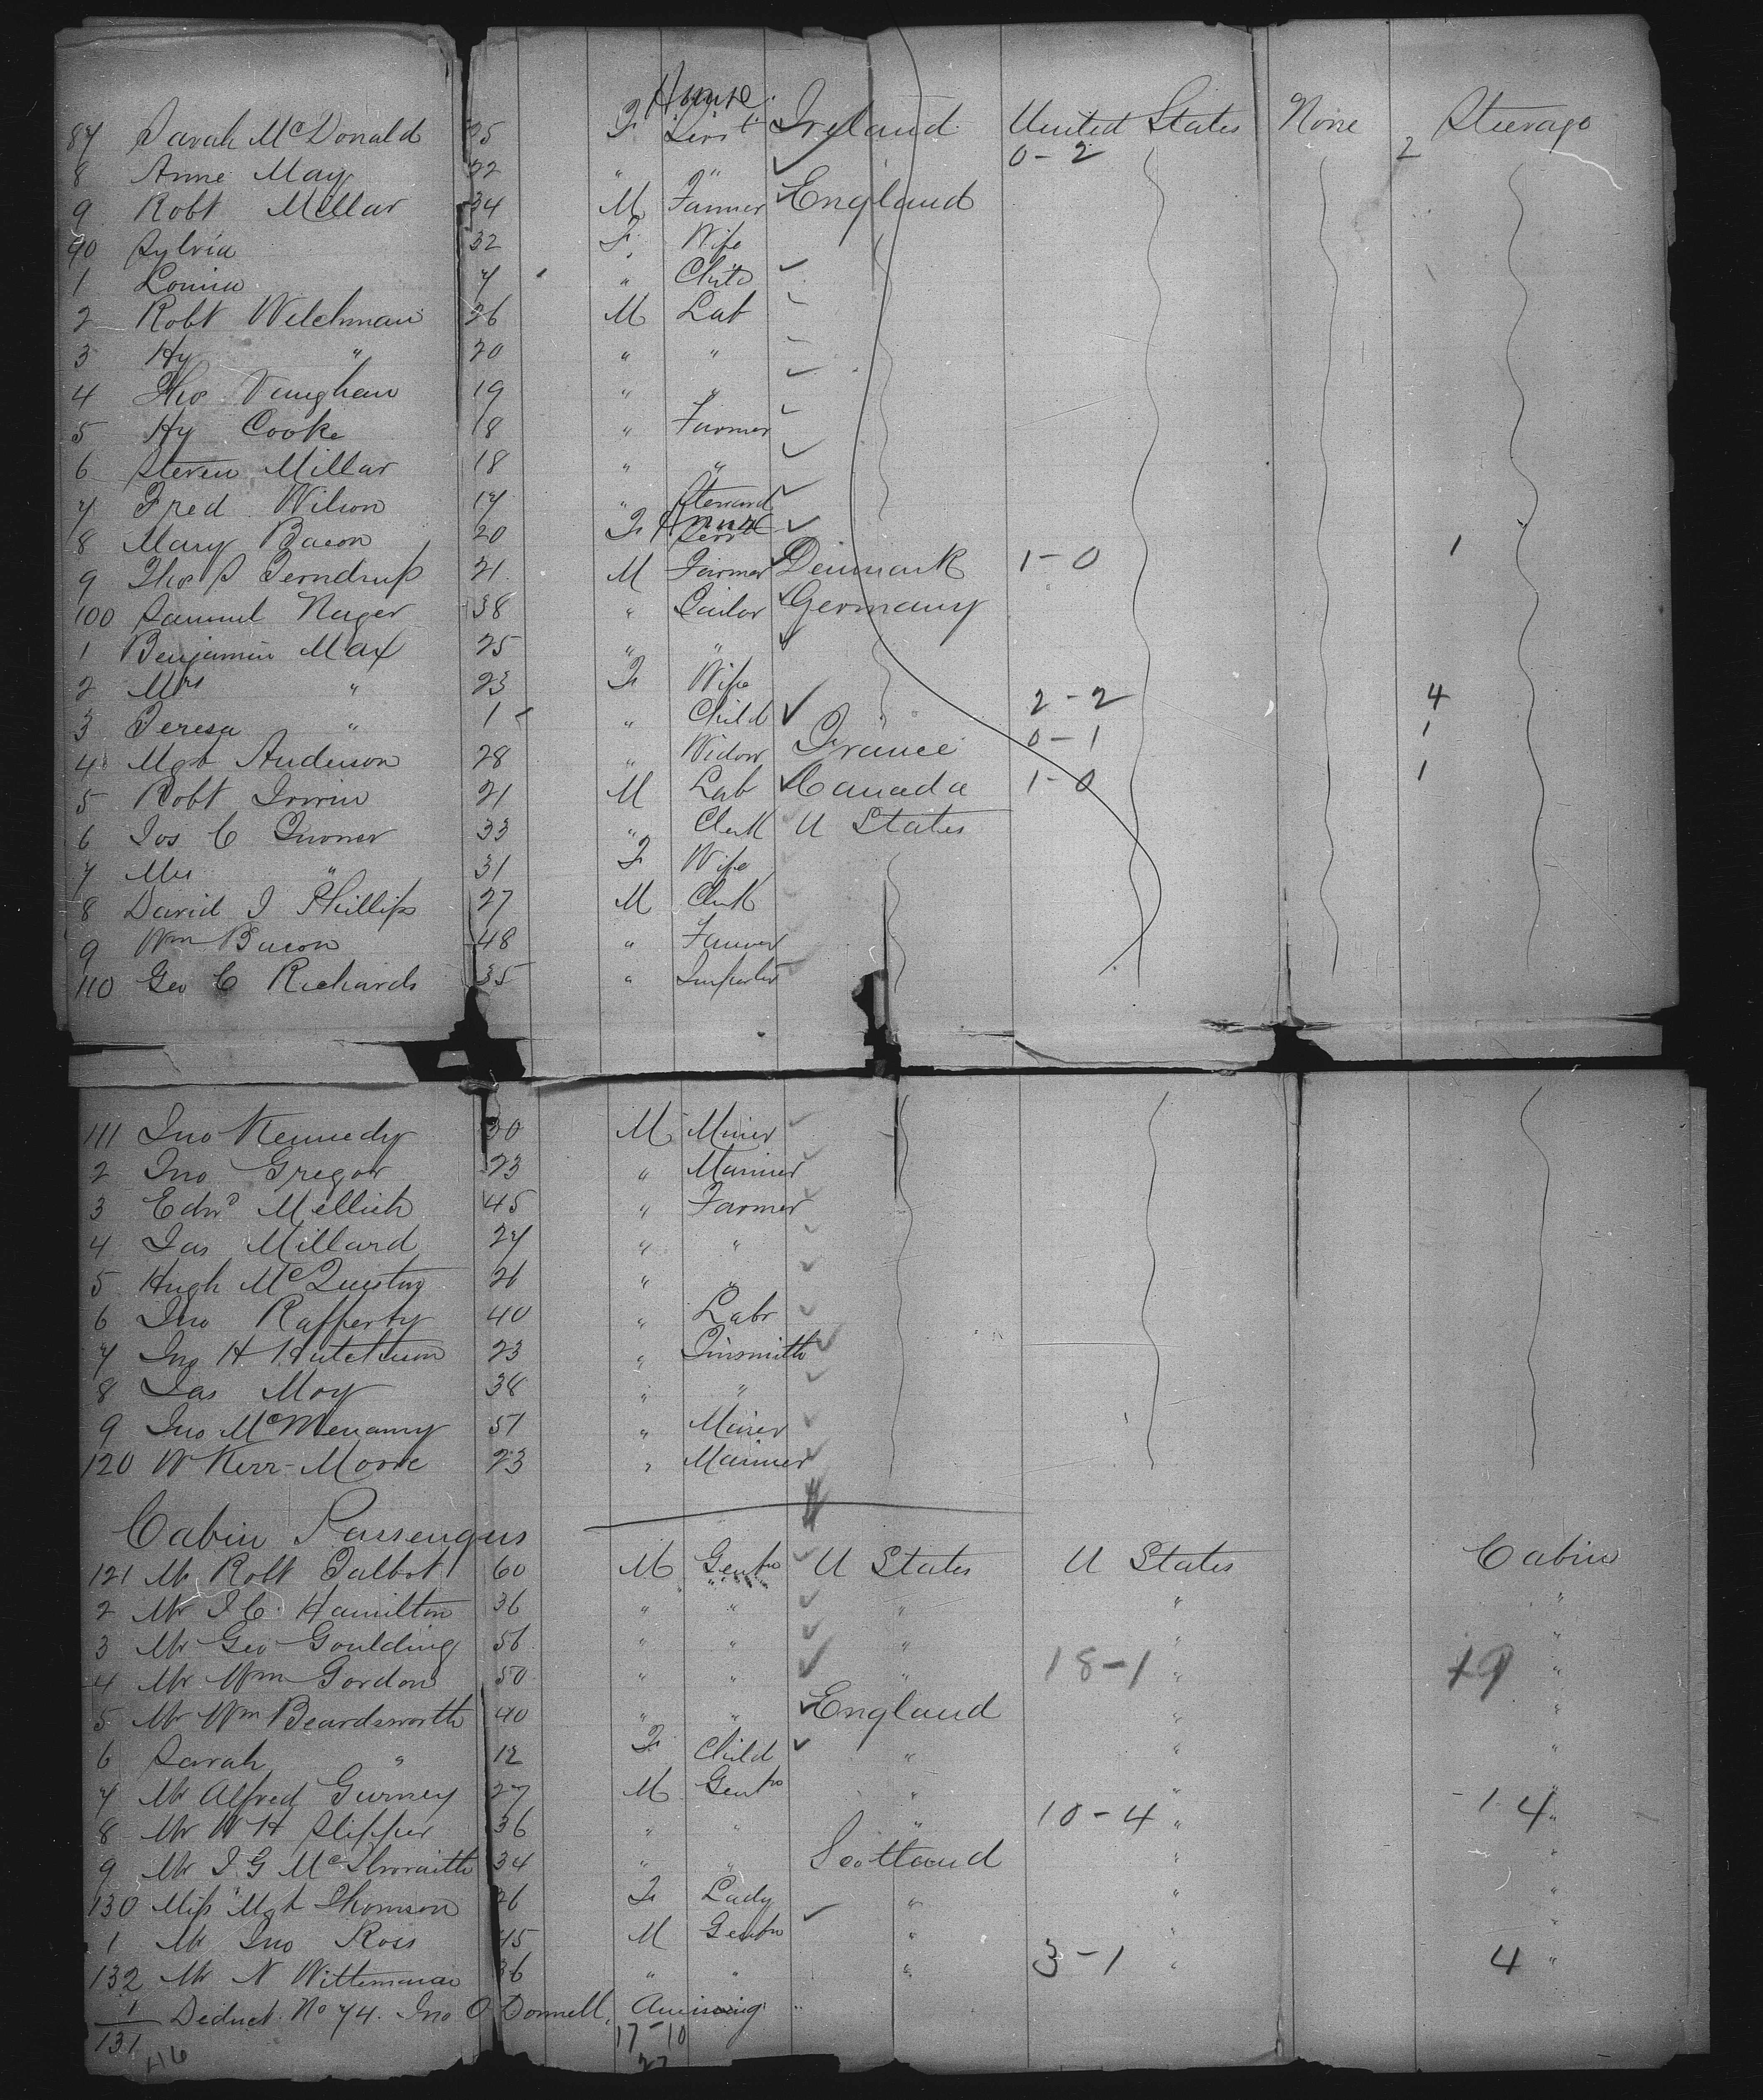 House
87 Sarah McDonald 25 F Servt Ireland United States None Steerage
0-2 2
8 Anne May 22 " " 
9 Robt Millar 34 M Farmer England
90 Sylvia 32 F Wife
1 Louisa 7 " Child
2 Robt Welchman 26 M Lab
3 Hy " 20 " "
4 Thos Vaughan 19 " "
5 Hy Cooke 18 " Farmer
6 Steven Millar 18 " "
7 Fred Wilson 17 " Steward
House
8 Mary Bacon 20 F Servt
1
9 Thos S Terndrup 21 M Farmer Denmark 1-0
100 Samuel Nager 38 " Tailor Germany
1 Benjamin Max 25 " "
2 Mrs " 23 F Wife 2-2 4
3 Teresa " 1 " Child 0-1 1
4 Mgt Anderson 28 " Widow France
5 Robt Irwin 21 M Lab Canada 1-0 1
6 Jos C Turner 33 " Clerk U States
7 Mrs " 31 F Wife
8 David J Phillips 27 M Clerk
9 Wm Bacon 48 " Farmer
110 Geo C Richards 35 " Importer
111 Jno Kennedy 30 M Miner
2 Jno Gregor 23 " Mariner
3 Edwd Mellish 45 " Farmer
4 Jas Millard 27 " "
5 Hugh McQuiston 26 " "
6 Jno Rafferty 40 " Labr
7 Jno H Hutchison 23 " Tinsmith
8 Jas Moy 38 " "
9 Jno McMenamy 51 " Miner
120 W Kerr-Moore 23 " Mariner
Cabin Passengers
121 Mr Robt Talbot 60 M Gentn U States U States Cabin
2 Mr J C Hamilton 36 " " " " "
3 Mr Geo Goulding 56 " " " " "
4 Mr Wm Gordon 50 " " " 18-1 " 19 "
5 Mr Wm Beardsworth 40 " " England " "
6 Sarah " 12 F Child " " "
7 Mr Alfred Gurney 27 M Gentn " " "
8 Mr W H Slipper 36 " " " 10-4 " 14 "
9 Mr J G McIlwraith 34 " " Scotland " "
130 Miss Mgt Thomson 26 F Lady " " "
1 Mr Jno Ross 45 M Gentn " " "
132 Mr N Witteman 36 " " " 3-1 " 4 "
1 Deduct No 74. Jno O'Donnell, Amissing
131 17-10
116 27